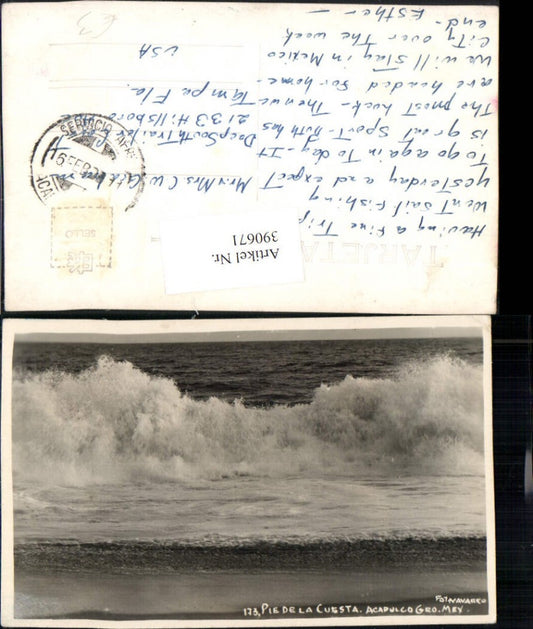 TARJETA
Having a fine Trip
Went sailfishing
yesterday and expect
To go again To day - It
is great Sport -
The most luck - Then we
are headed for home -
We will Stay in Mexico
City over The week
end - Esther -
Mr. & Mrs C W
Deep South Trailer
2133 Hillsboro
Tampa Fla.
USA
SELLO
Artikel Nr.
390671
173, PIE DE LA CUESTA. ACAPULCO GRO. MEX.
FOT. NAVARRO